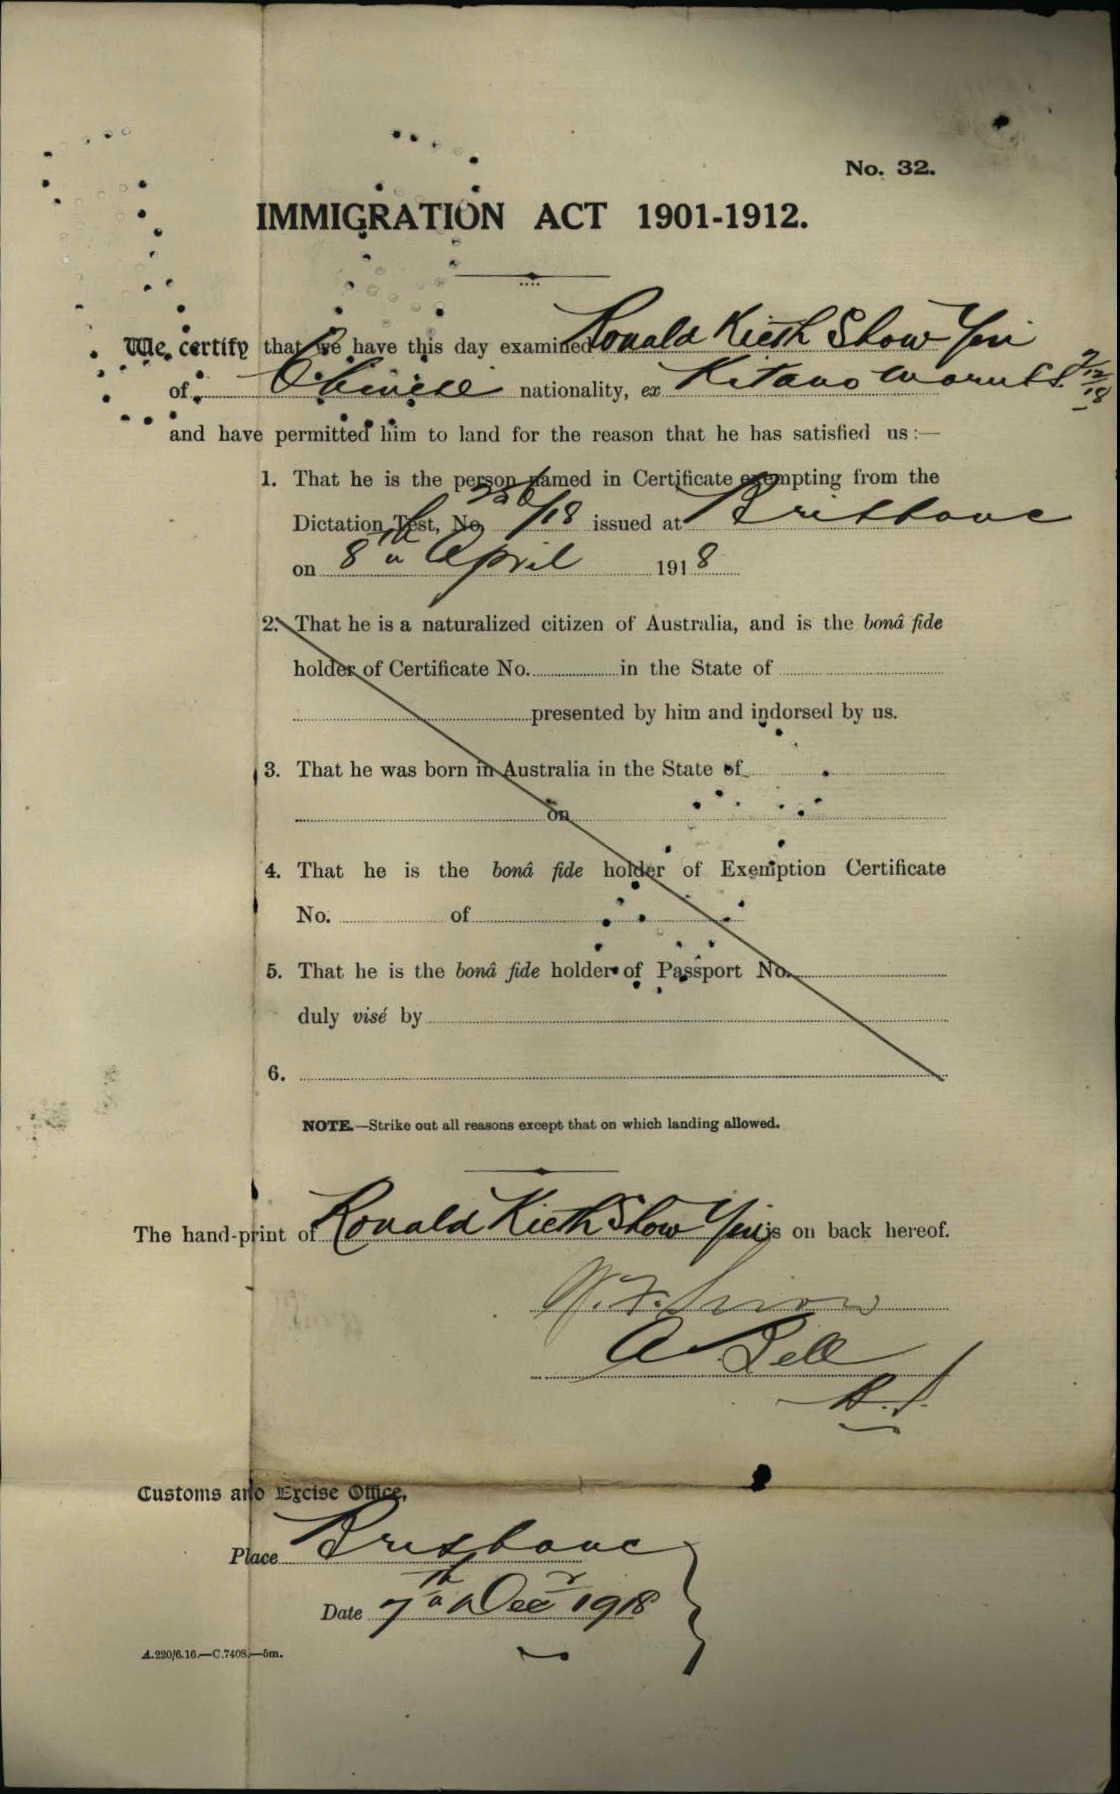 No. 32.
IMMIGRATION ACT 1901-1912.
We certify that we have this day examined Ronald Kieth Show Yin
of Chinese nationality, ex Kitano Maru 7/12/18
and have permitted him to land for the reason that he has satisfied us:—
1. That he is the person named in Certificate exempting from the
Dictation Test, No. /18 issued at Brisbane
on 8th April 1918
2. That he is a naturalized citizen of Australia, and is the bonâ fide
holder of Certificate No. in the State of
presented by him and indorsed by us.
3. That he was born in Australia in the State of
on
4. That he is the bonâ fide holder of Exemption Certificate
No. of
5. That he is the bonâ fide holder of Passport No.
duly visé by
6.
NOTE.—Strike out all reasons except that on which landing allowed.
The hand-print of Ronald Kieth Show Yin is on back hereof.
A. Bell
Customs and Excise Office,
Place Brisbane
Date 7th Decr 1918
A.220/6.16.—C.7408.—5m.